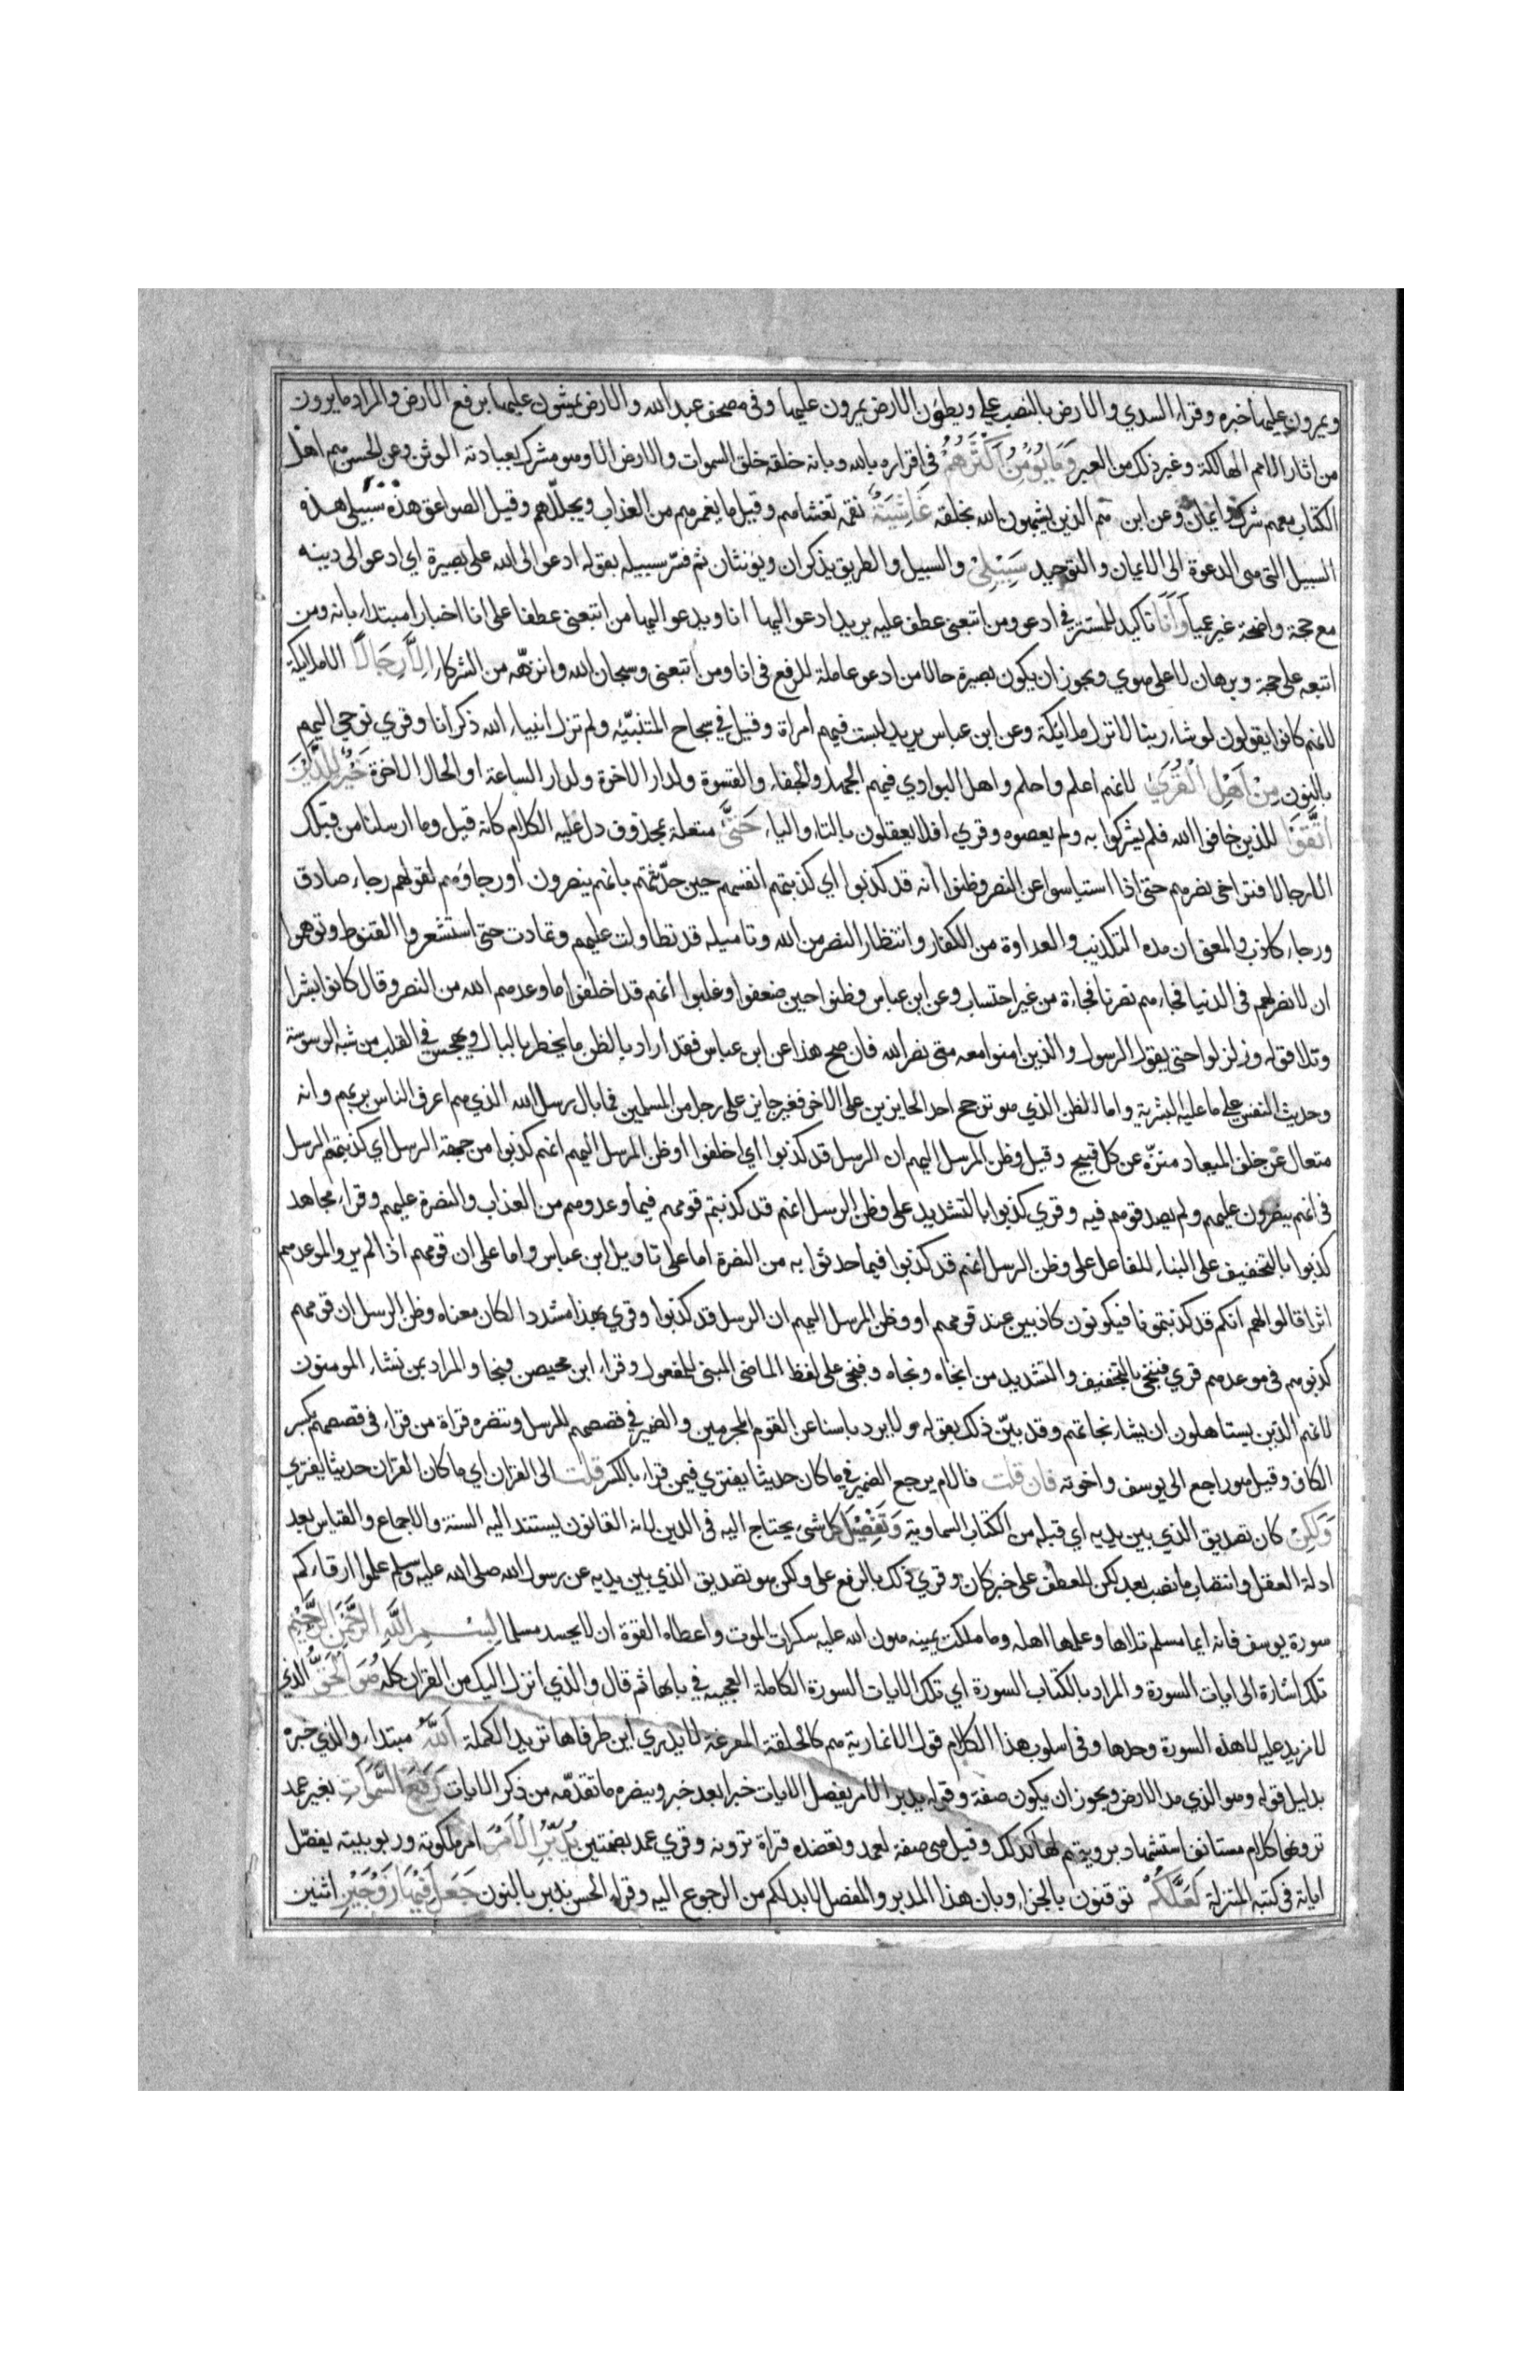 ويمرون عليها خبره وقراء السدي والارض بالنصب على ويطؤن الارض يمرون عليها وفى مصحف عبد الله والارض يمشون عليها برفع الارض والمراد ما يرون
من اثار الامم الهالكة وغير ذلك من العبر وَمَا يُؤْمِنُ اَكْثَرُهُمْ فى اقراره بالله وبانه خلقه خلق السموات والارض الا وهو مشرك بعبادته الوثن وعن الحسن هم اهل
الكتاب معهم شرك وايمان وعن ابن هم الذين يشبهون الله بخلقه غَاشِيَةٌ نقمه تغشاهم وقيل ما يغمرهم من العذاب ويجللهم وقيل الصواعق هذه سبيلى هذه
السبيل التى هى الدعوة الى الايمان والتوحيد سَبِيْلِىْ والسبيل والطريق يذكران ويؤنثان ثم فسّر سبيله بقوله ادعو الى الله على بصيرة اي ادعو الى دينه
مع حجة واضحة غير عميا وَاَنَا تاكيد للمستتر فى ادعو ومن اتبعنى عطف عليه يريد ادعو اليها انا ويدعو اليها من اتبعنى عطفا على انا اخبارا مبتداء بانه ومن
اتبعه على حجة وبرهان لا على هوي ويجوز ان يكون بصيرة حالا من ادعو عاملة للرفع فى انا ومن اتبعنى وسبحان الله وانزهه من الشركاء اِلَّا رِجَالًا لا ملايكة
لانهم كانوا يقولون لو شاء ربنا لانزل ملائيكة وعن ابن عباس يريد ليست فيهم امراة وقيل فى سجاح المتنبيّه ولم تزل انبياء الله ذكرانا وقري نوحي اليهم
بالنون مِنْ اَهْلِ الْقُرٰي لانهم اعلم واحلم واهل البوادي فيهم الجهل والجفاء والقسوة ولدار الاخرة ولدار الساعة او الحال الاخرة خَيْرٌ لِلَّذِيْنَ
اتَّقَوْا للذين خافوا الله فلم يشركوا به ولم يعصوه وقري افلا يعقلون بالتاء والياء حَتّٰى متعلة بمحذوف دل عليه الكلام كانه قيل وما ارسلنا من قبلك
الا رجالا فتراخى نصرهم حتى اذا استياسوا عن النصر وظنوا انه قد كذبوا اي كذبتهم انفسهم حين حدّثتهم بانهم ينصرون او رجاؤهم لقولهم رجاء صادق
ورجاء كاذب والمعنى ان مده التكذيب والعداوة من الكفار وانتظار النصر من الله وتاميله قد تطاولت عليهم وتمادت حتى استشعروا القنوط وتوهموا
ان لا نصر لهم فى الدنيا فجاءهم نصرنا فجاءة من غير احتساب وعن ابن عباس وظنوا حين ضعفوا وغلبوا انهم قد اخلفوا ما وعدهم الله من النصر وقال كانوا بشرا
وتلا قوله وزلزلوا حتى يقول الرسول والذين امنوا معه متى نصر الله فان صح هذا عن ابن عباس فقد اراد بالظن ما يخطر بالبال ويهجس فى القلب من شبه الوسوسة
وحديث النفس على ما عليه البشرية واما الظن الذي هو ترجح احد الجايزين على الاخر فغير جايز على رجل من المسلمين فما بال رسل الله الذي هم اعرف الناس بربهم وانه
متعال عن خلف الميعاد منزّه عن كل قبيح وقيل وظن المرسل اليهم ان الرسل قد كذبوا اي اخلفوا او ظن المرسل اليهم انهم كذبوا من جهة الرسل اي كذبتهم الرسل
فى انهم ينصرون عليهم ولم يصدقوهم فيه وقري كذبوا بالتشديد على وظن الرسل انهم قد كذبتهم قومهم فيما وعدوهم من العذاب والنصرة عليهم وقراء مجاهد
كذبوا بالتخفيف على البناء للفاعل على وظن الرسل انهم قد كذبوا فيما حدثوا به من النصرة اما على تاويل ابن عباس واما على ان قومهم اذا لم يروا لموعدهم
اثرا قالوا لهم انكم قد كذبتمونا فيكونون كاذبين عند قومهم او وظن المرسل اليهم ان الرسل قد كذبوا وقري بهذا مشددا لكان معناه وظن الرسل ان قومهم
كذبوهم فى موعدهم قري فننجى بالتخفيف والتشديد من انجاه ونجاه وفنجى على لفظ الماضى المبنى للمفعول وقراء ابن محيصن فنجا والمراد بمن نشاء المومنون
لانهم الذين يستاهلون ان يشاء نجاتهم وقد بيّن ذلك بقوله ولا يرد باسنا عن القوم المجرمين والضمير فى قصصهم للرسل وتنصره قراة من قراء فى قصصهم بكسر
الكاف وقيل هو راجع الى يوسف واخوته فان قلت فالام يرجع الضمير فى ما كان حديثا يفترى فيمن قراء بالكسر قلت الى القران اي ما كان القران حديثا يفتري
وَلٰكِنْ كان تصديق الذي بين يديه اي قبله من الكتاب السماوية وَتَفْصِيْلَ كل شى يحتاج اليه فى الدين لانه القانون يستند اليه السنة والاجماع والقياس بعد
ادلة العقل وانتصاب ما نصب بعد لكن للعطف على خبر كان وقري ذلك بالرفع على ولكن هو تصديق الذي بين يديه عن رسول الله صلى الله عليه وسلم علموا ارقاءكم
سورة يوسف فانه ايما مسلم تلاها وعلمها اهله وما ملكت يمينه هون الله عليه سكرات الموت واعطاه القوة ان لا يحسد مسلما بِسْمِ اللّٰهِ الرَّحْمٰنِ الرَّحِيْمِ
تلك اشارة الى ايات السورة والمراد بالكتاب السورة اي تلك الايات السورة الكاملة العجيبه فى بابها ثم قال والذي انزل اليك من القران كله هُوَ الْحَقُّ الذي
لا مزيد عليه لا هذه السورة وحدها وفى اسلوب هذا الكلام قول الانمارية هم كالحلقة المفرغة لا يدري اين طرفاها تريد الكملة اَللّٰهُ مبتداء والذي خبره
بدليل قوله وهو الذي مد الارض ويجوز ان يكون صفة وقوله يدبر الامر يفصل الايات خبرا بعد خبر وينصره ما تقدّمه من ذكر الايات رَفَعَ السَّمٰوٰتِ بغير عمد
ترونها كلام مستانف استشهاد برويتهم لها كذلك وقيل هى صفة لعمد وتعضده قراة ترونه وقري عمد بضمتين يُدَبِّرُ الْاَمْرَ امر ملكوته وربوبيته يفصّل
اياته فى كتبه المنزلة لَعَلَّكُمْ توقنون بالجزاء وبان هذا المدبر والمفصل لابد لكم من الرجوع اليه وقراء الحسن ندبر بالنون جَعَلَ فِيْهَا زَوْجَيْنِ اثنين